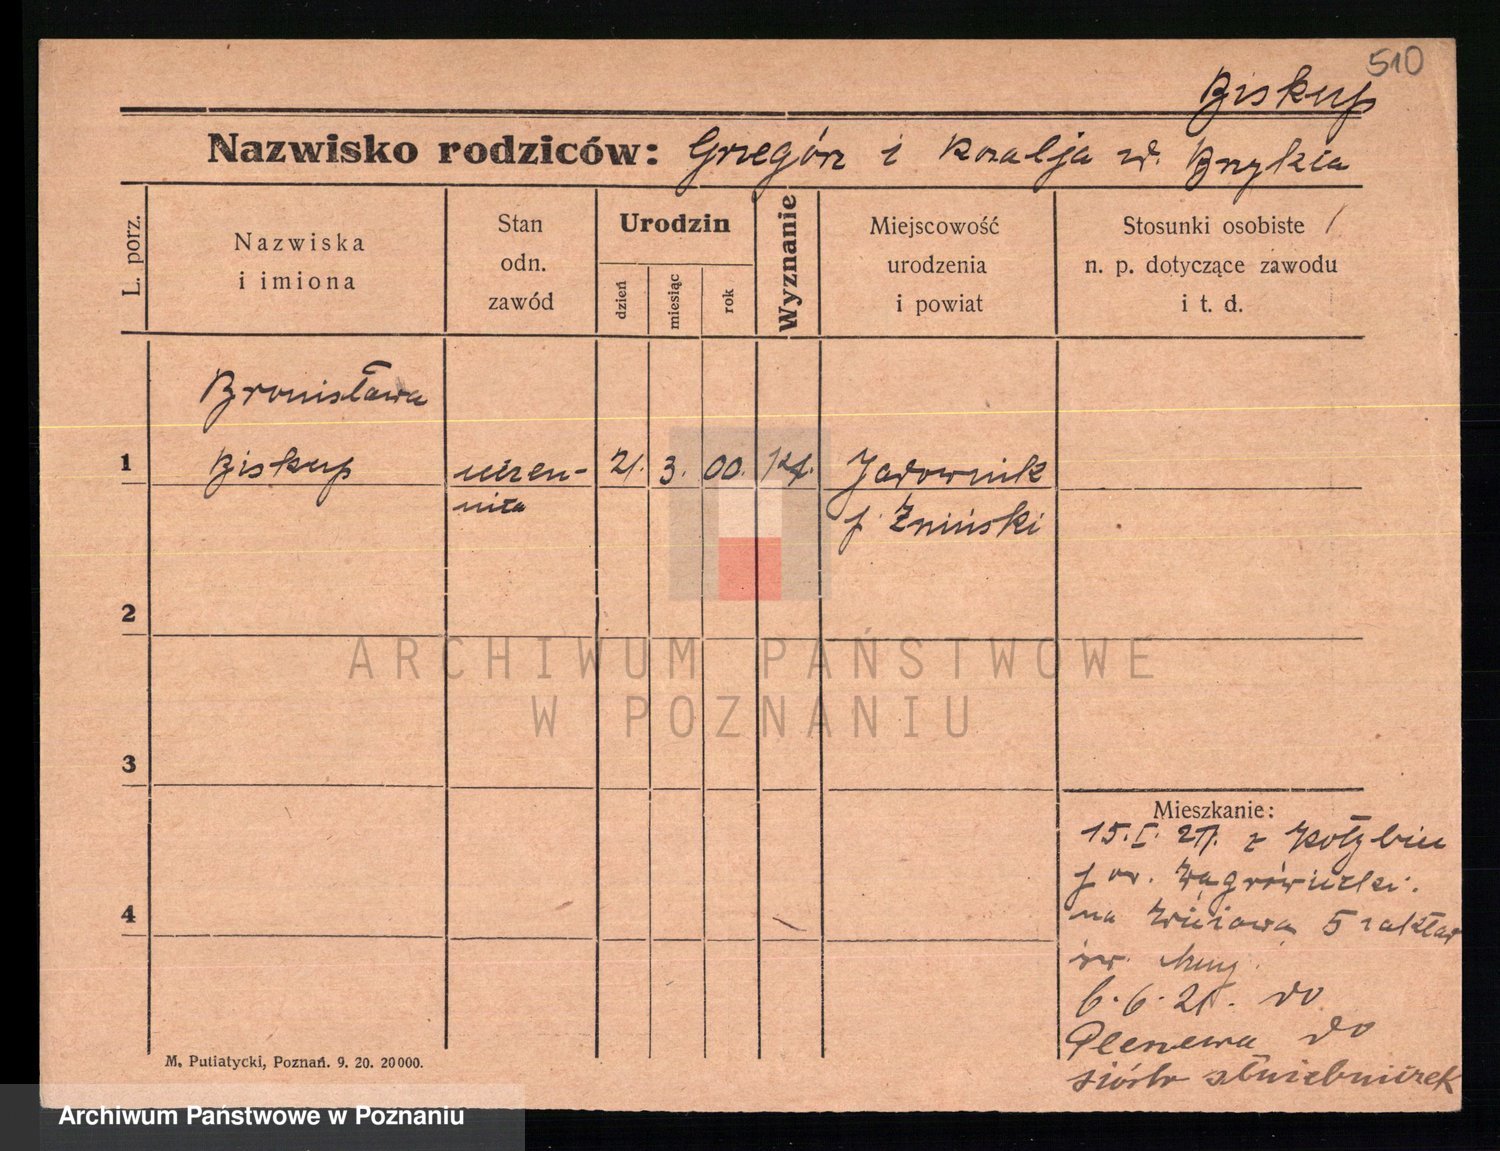 510
Biskup
Nazwisko rodziców: Grzegórz i Rozalja z d. Brzykca
L. porz.
Nazwiska
i imiona
Stan
odn.
zawód
Urodzin
dzień
miesiąc
rok
Wyznanie
Miejscowość
urodzenia
i powiat
Stosunki osobiste /
n. p. dotyczące zawodu
i t. d.
Bronisława
1 Biskup uczen- 21. 3. 00. kt. Jadownik
nica p. Żniński
2
3
4
Mieszkanie:
15.I.21. z Kołybiec
pow. Wągrówiecki.
na Łąkowa 5 zakład
św.
6.6.21. do
Pleszewa do
sióstr służebniczek
M. Putiatycki, Poznań. 9. 20. 20000.
ARCHIWUM PAŃSTWOWE
W POZNANIU
Archiwum Państwowe w Poznaniu